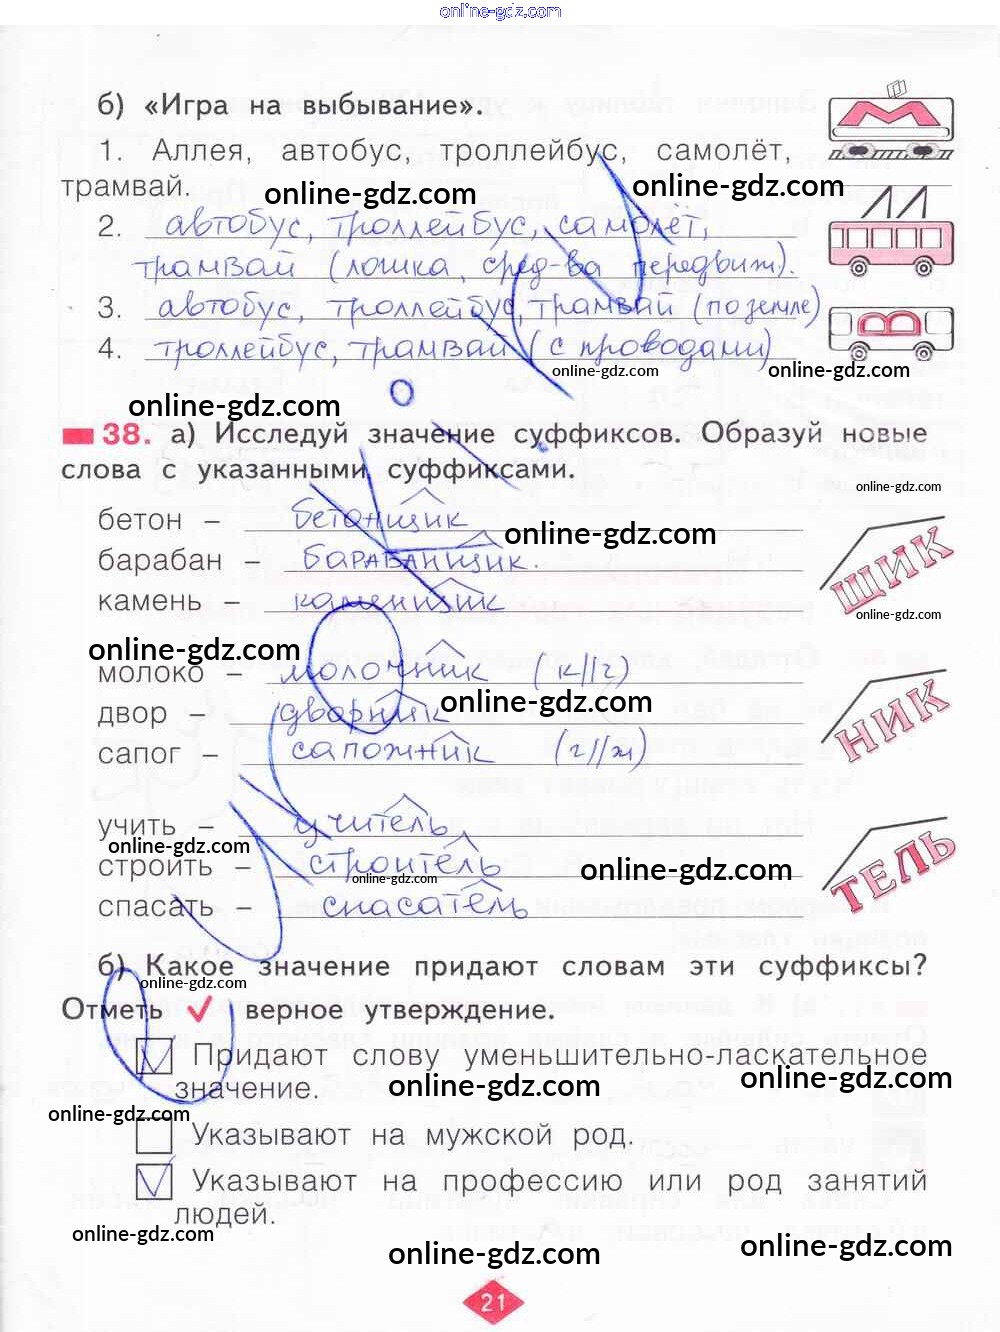 online-gdz.com
б) «Игра на выбывание».
1. Аллея, автобус, троллейбус, самолёт,
трамвай.
online-gdz.com
online-gdz.com
2. автобус, троллейбус, самолёт,
трамвай (лошка, сред-ва передвиж).
3. автобус, троллейбус, трамвай (по земле)
4. троллейбус, трамвай (с проводами)
В
online-gdz.com
online-gdz.com
online-gdz.com
38. а) Исследуй значение суффиксов. Образуй новые
слова с указанными суффиксами.
online-gdz.com
бетон – бетонщик
online-gdz.com
барабан – барабанщик.
камень – каменщик
ЩИК
online-gdz.com
online-gdz.com
молоко – молочник (к//ч)
online-gdz.com
двор – дворник
сапог – сапожник (г//ж)
НИК
учить – учитель
online-gdz.com
строить – строитель
online-gdz.com
online-gdz.com
спасать – спасатель
ТЕЛЬ
б) Какое значение придают словам эти суффиксы?
online-gdz.com
Отметь верное утверждение.
Придают слову уменьшительно-ласкательное
значение.
online-gdz.com
online-gdz.com
online-gdz.com
Указывают на мужской род.
Указывают на профессию или род занятий
людей.
online-gdz.com
online-gdz.com
online-gdz.com
21